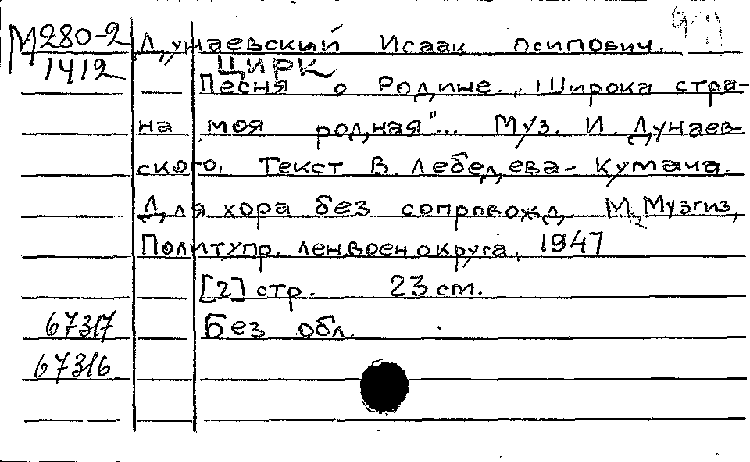 М280-2 Дунаевский Исаак Осипович.
1412 ЦИРК
Песня о Родине. „Широка стра-
на моя родная"... Муз. И. Дунаев-
ского. Текст В. Лебедева-Кумача.
Для хора без сопровожд. М., Музгиз,
Политупр. Ленвоенокруга, 1947
[2] стр. 23 cm.
67317 Без обл.
67316